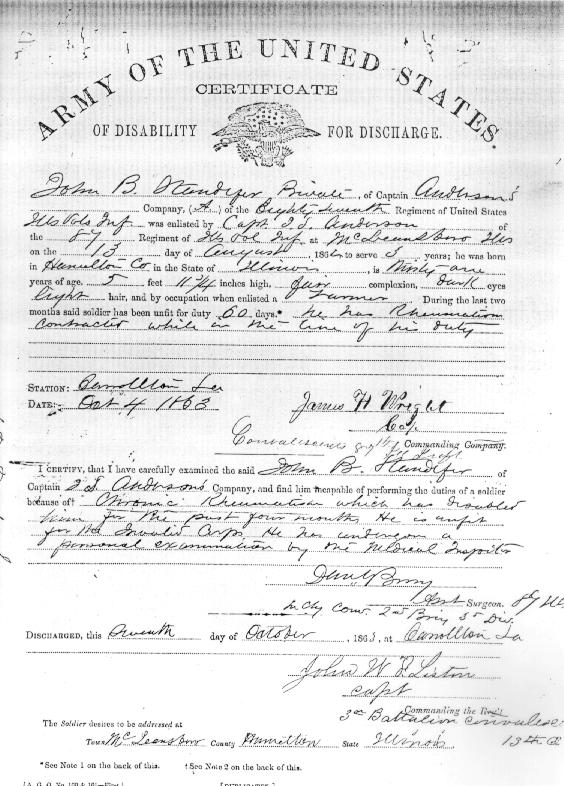 ARMY OF THE UNITED STATES.
CERTIFICATE
OF DISABILITY FOR DISCHARGE.
John B. Standifer Private, of Captain Anderson's
Company, (A) of the Eighty Seventh Regiment of United States
Ills Vols Inf was enlisted by Capt. J. J. Anderson of
the 87 Regiment of Ills Vol Inf at McLeansboro Ills
on the 13 day of August, 1862 to serve 3 years; he was born
in Hamilton Co in the State of Illinois, is
years of age, 5 feet 11 3/4 inches high, fair complexion, dark eyes
light hair, and by occupation when enlisted a Farmer. During the last two
months said soldier has been unfit for duty 60 days.* he has Rheumatism
contracted while in the line of his duty
STATION: Carrollton La
DATE: Oct 4 1863
James H Wright
Cap
Convalescents Commanding Company.
I CERTIFY, that I have carefully examined the said John B. Standifer of
Captain J. J. Andersons Company, and find him incapable of performing the duties of a soldier
because of† Chronic Rheumatism which has disabled
him for the past four months He is unfit
for the Invalid Corps. He has undergone a
personal examination by the Medical Inspector
Asst Surgeon. 87 Ill
In Chg Conv. 2nd Brig 3d Div.
DISCHARGED, this Seventh day of October, 1863, at Carrollton La
John W Liston
Capt
Commanding the Reg't.
3rd Battalion
13th
The Soldier desires to be addressed at
Town McLeansboro County Hamilton State Illinois
*See Note 1 on the back of this. †See Note 2 on the back of this.
[A. G. O. No. First.] [DUPLICATES.]